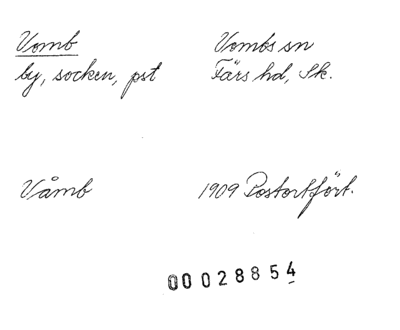 Vomb Vombs sn
by, socken, pst Färs hd, Sk.
Våmb 1909 Postortfört.
00028854